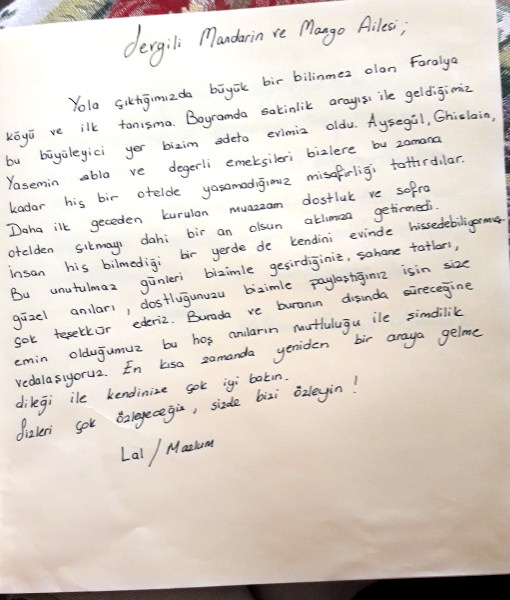 Sevgili Mandarin ve Mango Ailesi;
Yola çıktığımızda büyük bir bilinmez olan Faralya
köyü ve ilk tanışma. Bayramda sakinlik arayışı ile geldiğimiz
bu büyüleyici yer bizim adeta evimiz oldu. Ayşegül, Ghislain,
Yasemin abla ve değerli emekçileri bizlere bu zamana
kadar hiç bir otelde yaşamadığımız misafirliği tattırdılar.
Daha ilk geceden kurulan muazzam dostluk ve sofra
otelden çıkmayı dahi bir an olsun aklımıza getirmedi.
İnsan hiç bilmediği bir yerde de kendini evinde hissedebiliyormuş.
Bu unutulmaz günleri bizimle geçirdiğiniz, şahane tatları,
güzel anıları, dostluğunuzu bizimle paylaştığınız için size
çok teşekkür ederiz. Burada ve buranın dışında süreceğine
emin olduğumuz bu hoş anıların mutluluğu ile şimdilik
vedalaşıyoruz. En kısa zamanda yeniden bir araya gelme
dileği ile kendinize çok iyi bakın.
Sizleri çok özleyeceğiz, sizde bizi özleyin!
Lal / Mazlum